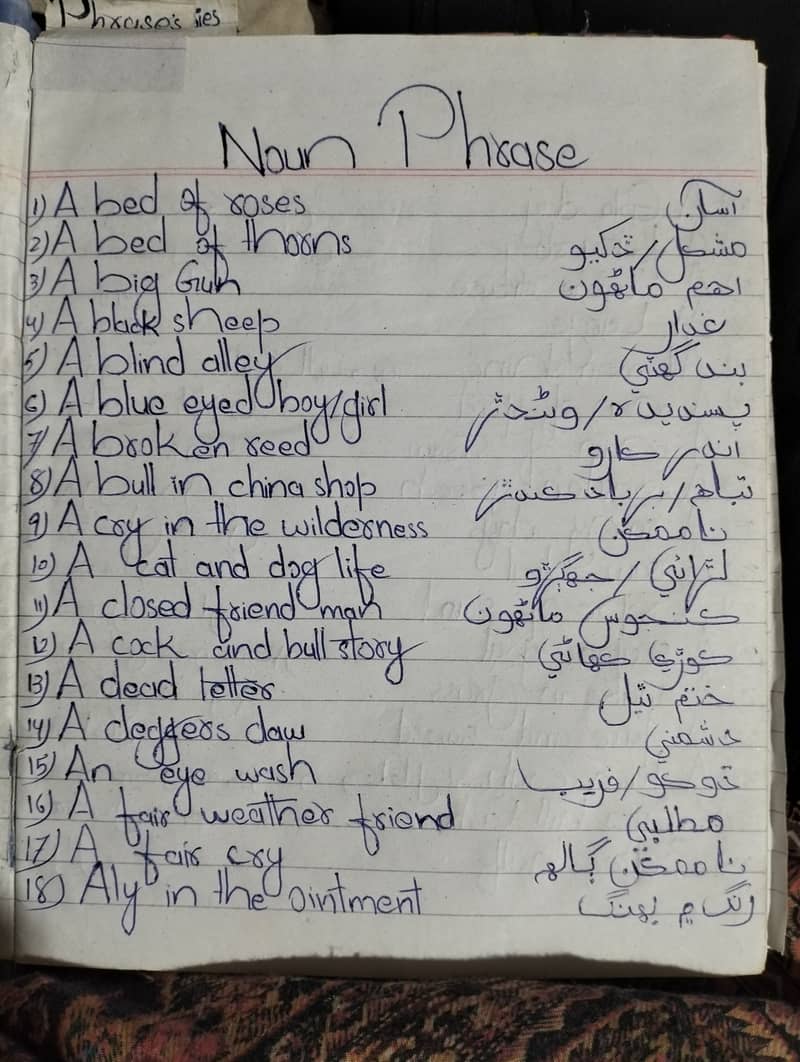 Phrase's ies
Noun Phrase
1) A bed of roses آسان
2) A bed of thorns مشڪل/ڏکيو
3) A big Gun اهم ماڻهون
4) A black sheep غدار
5) A blind alley بند گهٽي
6) A blue eyed boy/girl پسنديده/وڻندڙ
7) A broken reed
8) A bull in china shop تباهه/برباد ڪندڙ
9) A cry in the wilderness ناممڪن
10) A cat and dog life لڙائي/جهيڙو
11) A closed friend man ڪنجوس ماڻهون
12) A cock and bull story ڪوڙي ڪهاڻي
13) A dead letter ختم ٿيل
14) A deggers daw دشمني
15) An eye wash دوکو/فريب
16) A fair weather friend مطلبي
17) A fair cry ناممڪن ڳالهه
18) Aly in the ointment رنگ ۾ ڀنگ